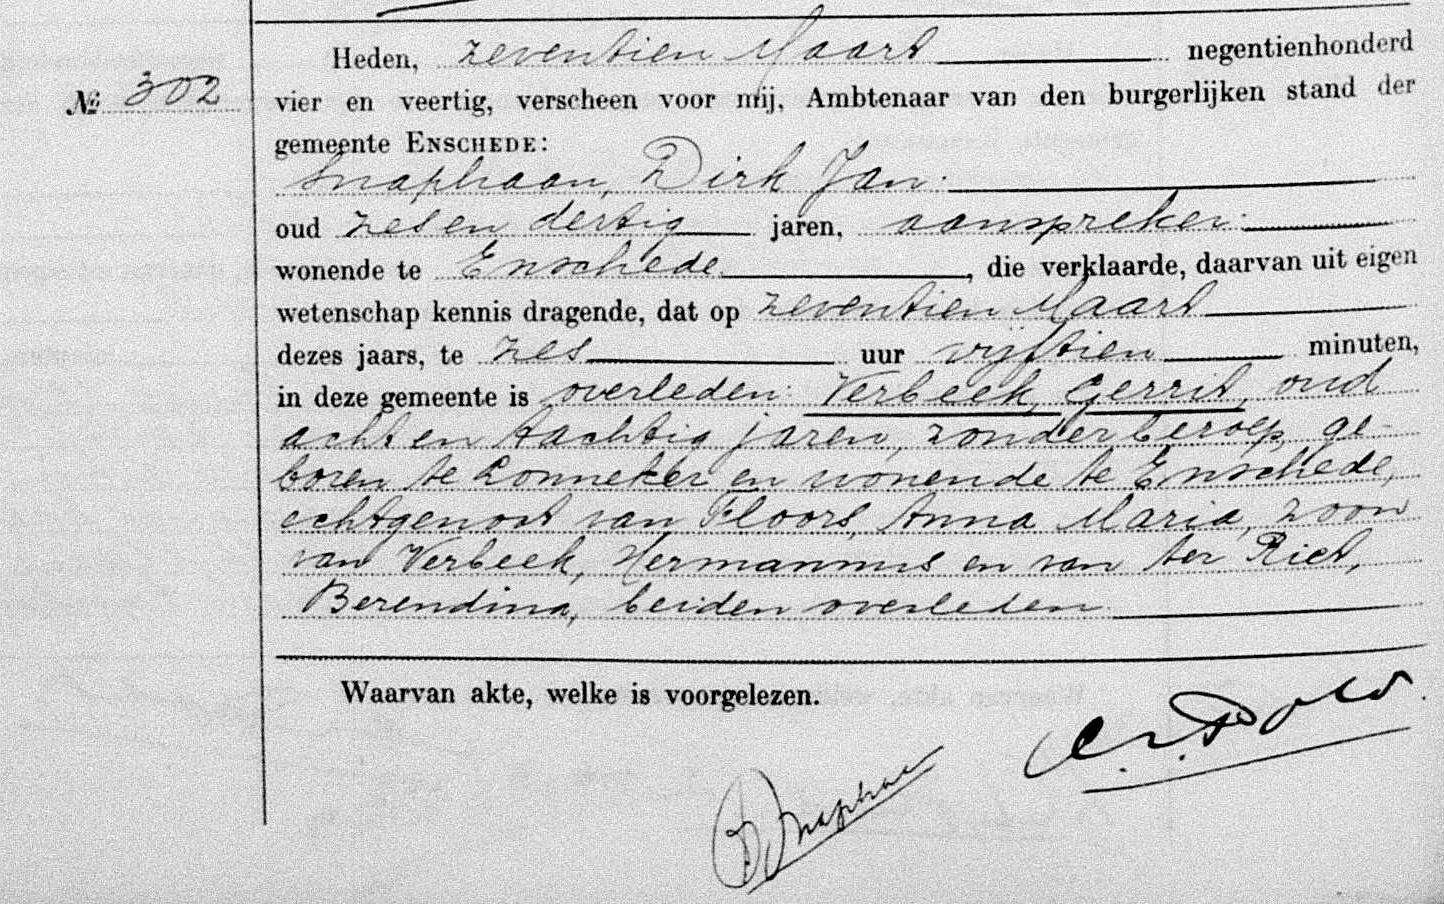 Heden, zeventien Maart negentienhonderd
No 302
vier en veertig, verscheen voor mij, Ambtenaar van den burgerlijken stand der
gemeente ENSCHEDE:
Snaphaan, Dirk Jan
oud zes en dertig jaren, aanspreker
wonende te Enschede, die verklaarde, daarvan uit eigen
wetenschap kennis dragende, dat op zeventien Maart
dezes jaars, te zes uur vijftien minuten,
in deze gemeente is overleden: Verbeek, Gerrit, oud
acht en tachtig jaren, zonder beroep, ge-
boren te Lonneker en wonende te Enschede,
echtgenoot van Floors, Anna Maria, zoon
van Verbeek, Hermannus en van ter Riet,
Berendina, beiden overleden
Waarvan akte, welke is voorgelezen.
Snaphaan